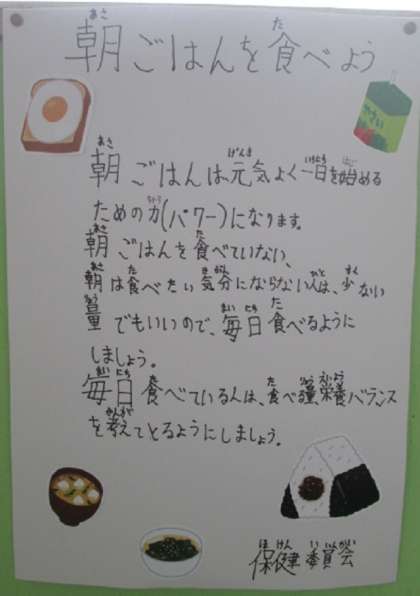 朝ごはんを食べよう
やさい
朝ごはんは元気よく一日を始める
ための力(パワー)になります。
朝ごはんを食べていない、
朝は食べたい気分にならない人は、少ない
量でもいいので、毎日食べるように
しましょう。
毎日食べている人は、食べる量、栄養バランス
を考えてとるようにしましょう。
保健委員会